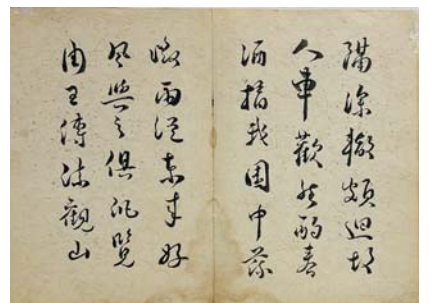 隔深轍頗迴故
人車歡然酌春
酒摘我園中蔬
微雨從東來好
風與之俱汎覽
周王傳流觀山